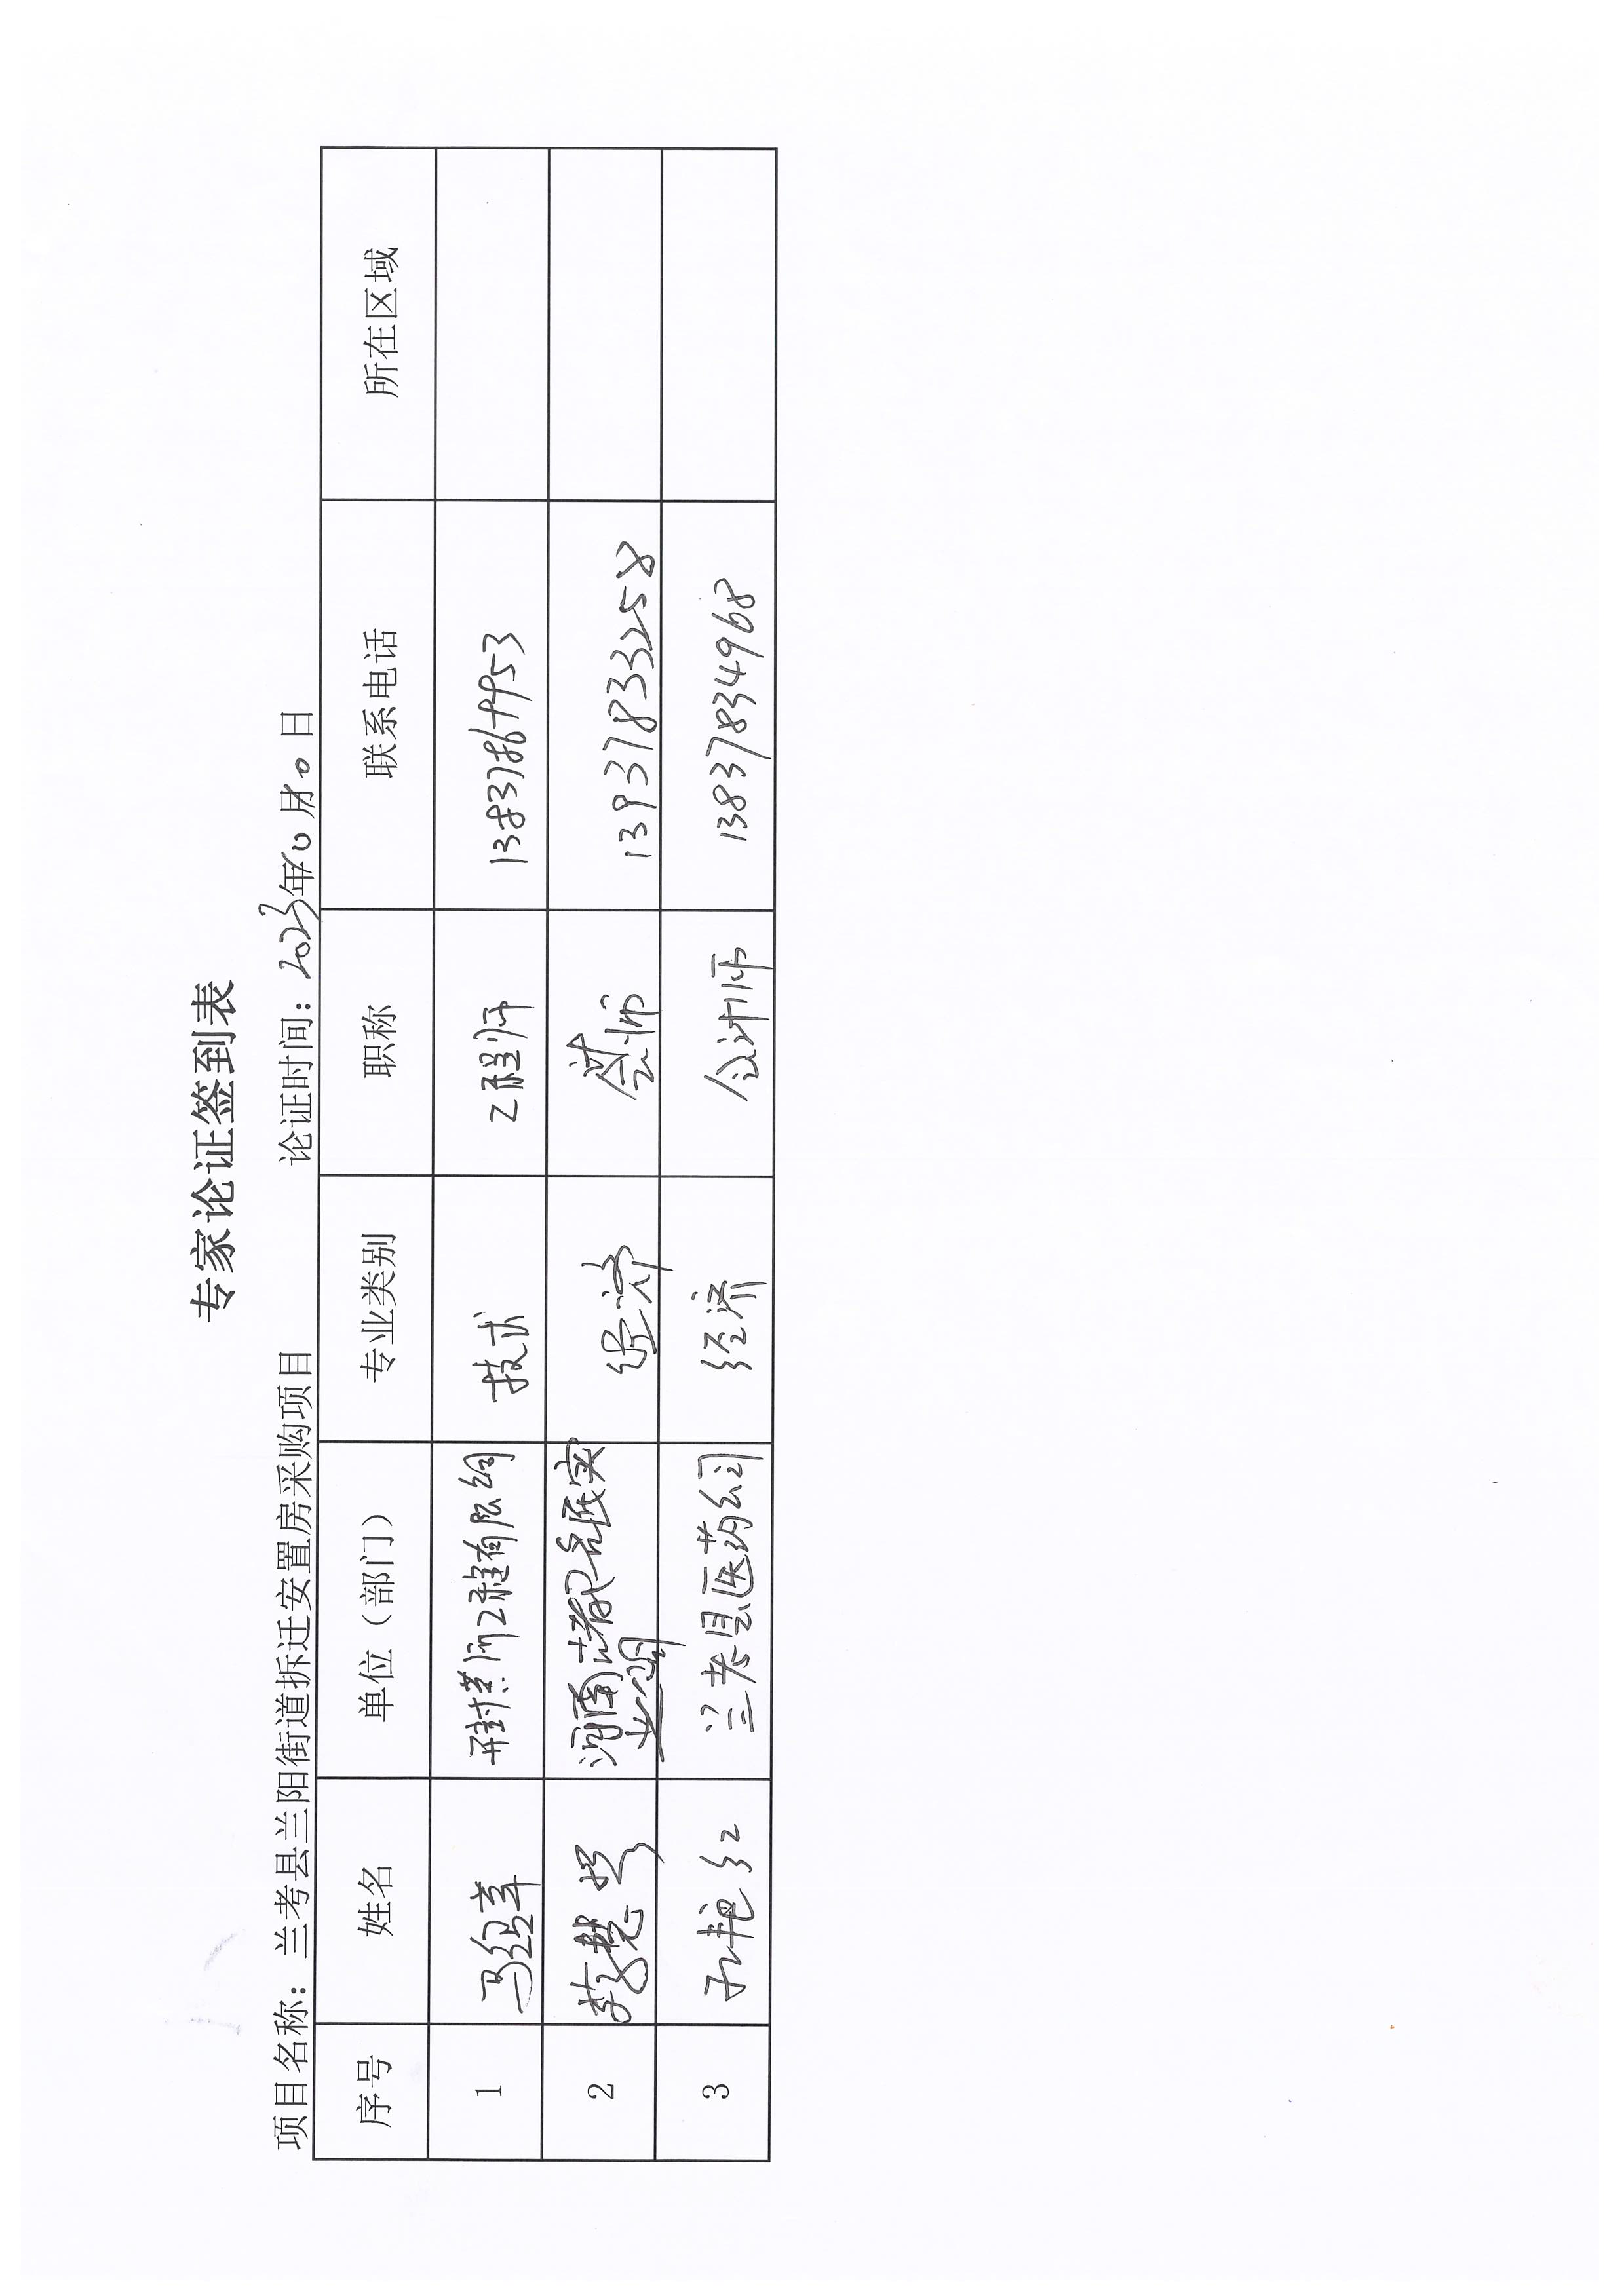 专家论证签到表
项目名称：兰考县兰阳街道拆迁安置房采购项目 论证时间：2023年10月10日
序号 姓名 单位（部门） 专业类别 职称 联系电话 所在区域
1 开封黄河工程有限公司 技术 工程师 13837864953
2 河南 实业公司 经济 会计师 13937833258
3 孔艳红 兰考县医药公司 经济 会计师 13837834968